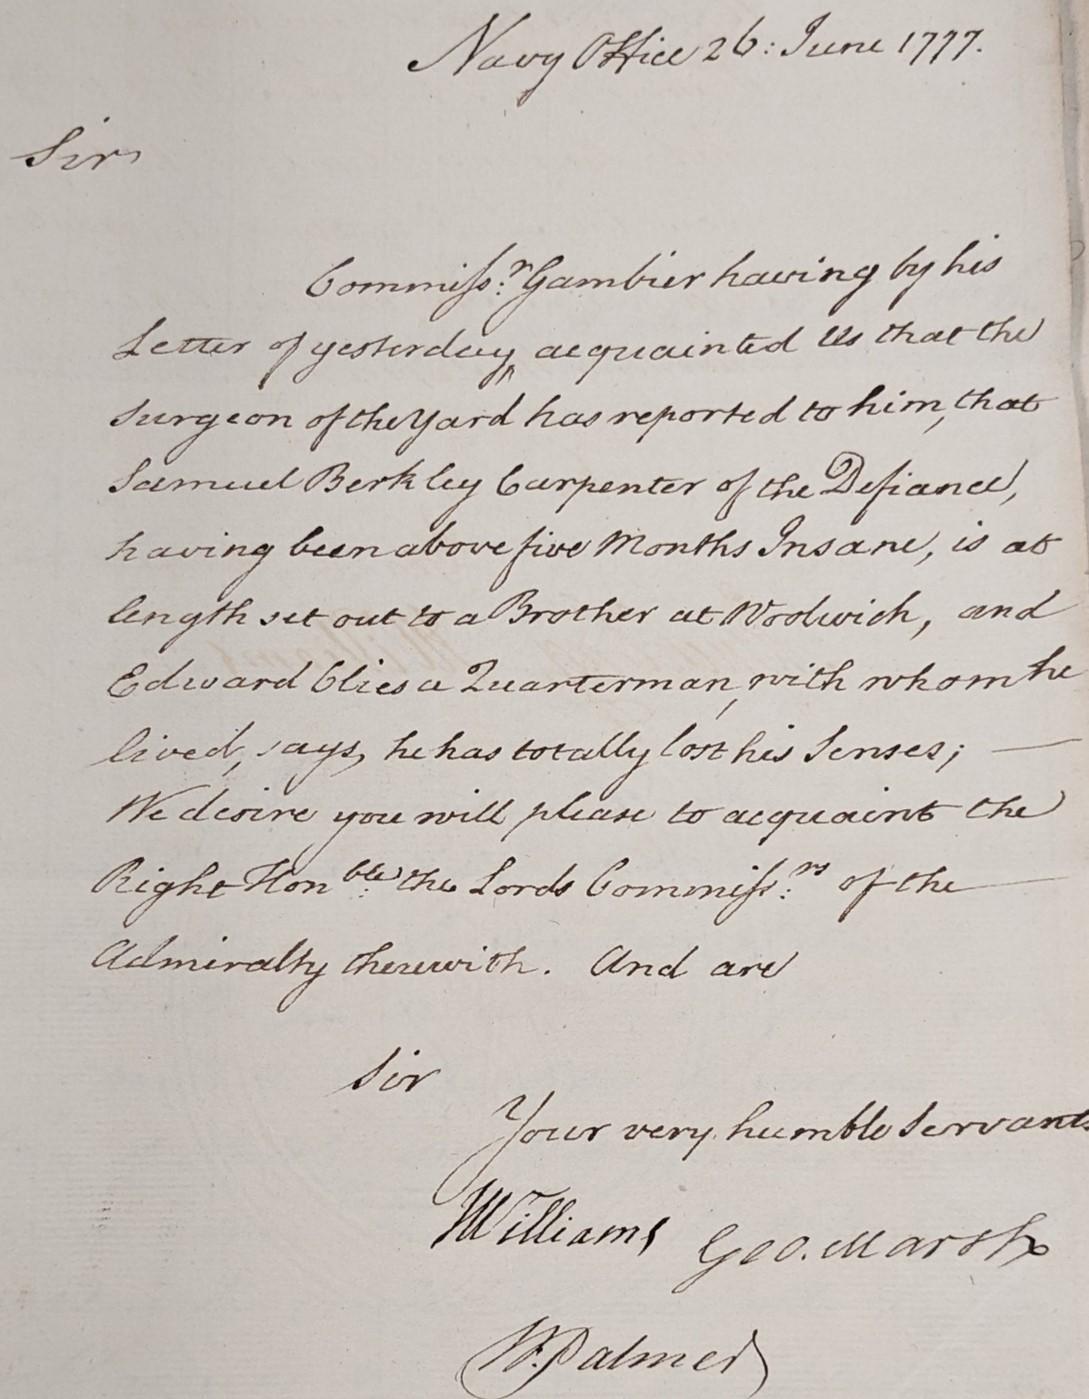 Navy Office 26: June 1777.
Sir
Commiss:r Gambier having by his
Letter of yesterday, acquainted Us that the
Surgeon of the Yard has reported to him, that
Samuel Berkley Carpenter of the Defiance,
having been above five Months Insane, is at
length set out to a Brother at Woolwich, and
Edward Clies a Quarterman, with whom he
lived, says, he has totally lost his Senses; —
We desire you will please to acquaint the
Right Hon:ble the Lords Commiss:rs of the —
Admiralty therewith. And are
Sir
Your very humble Servants
JWilliams Geo. Marsh
W. Palmer